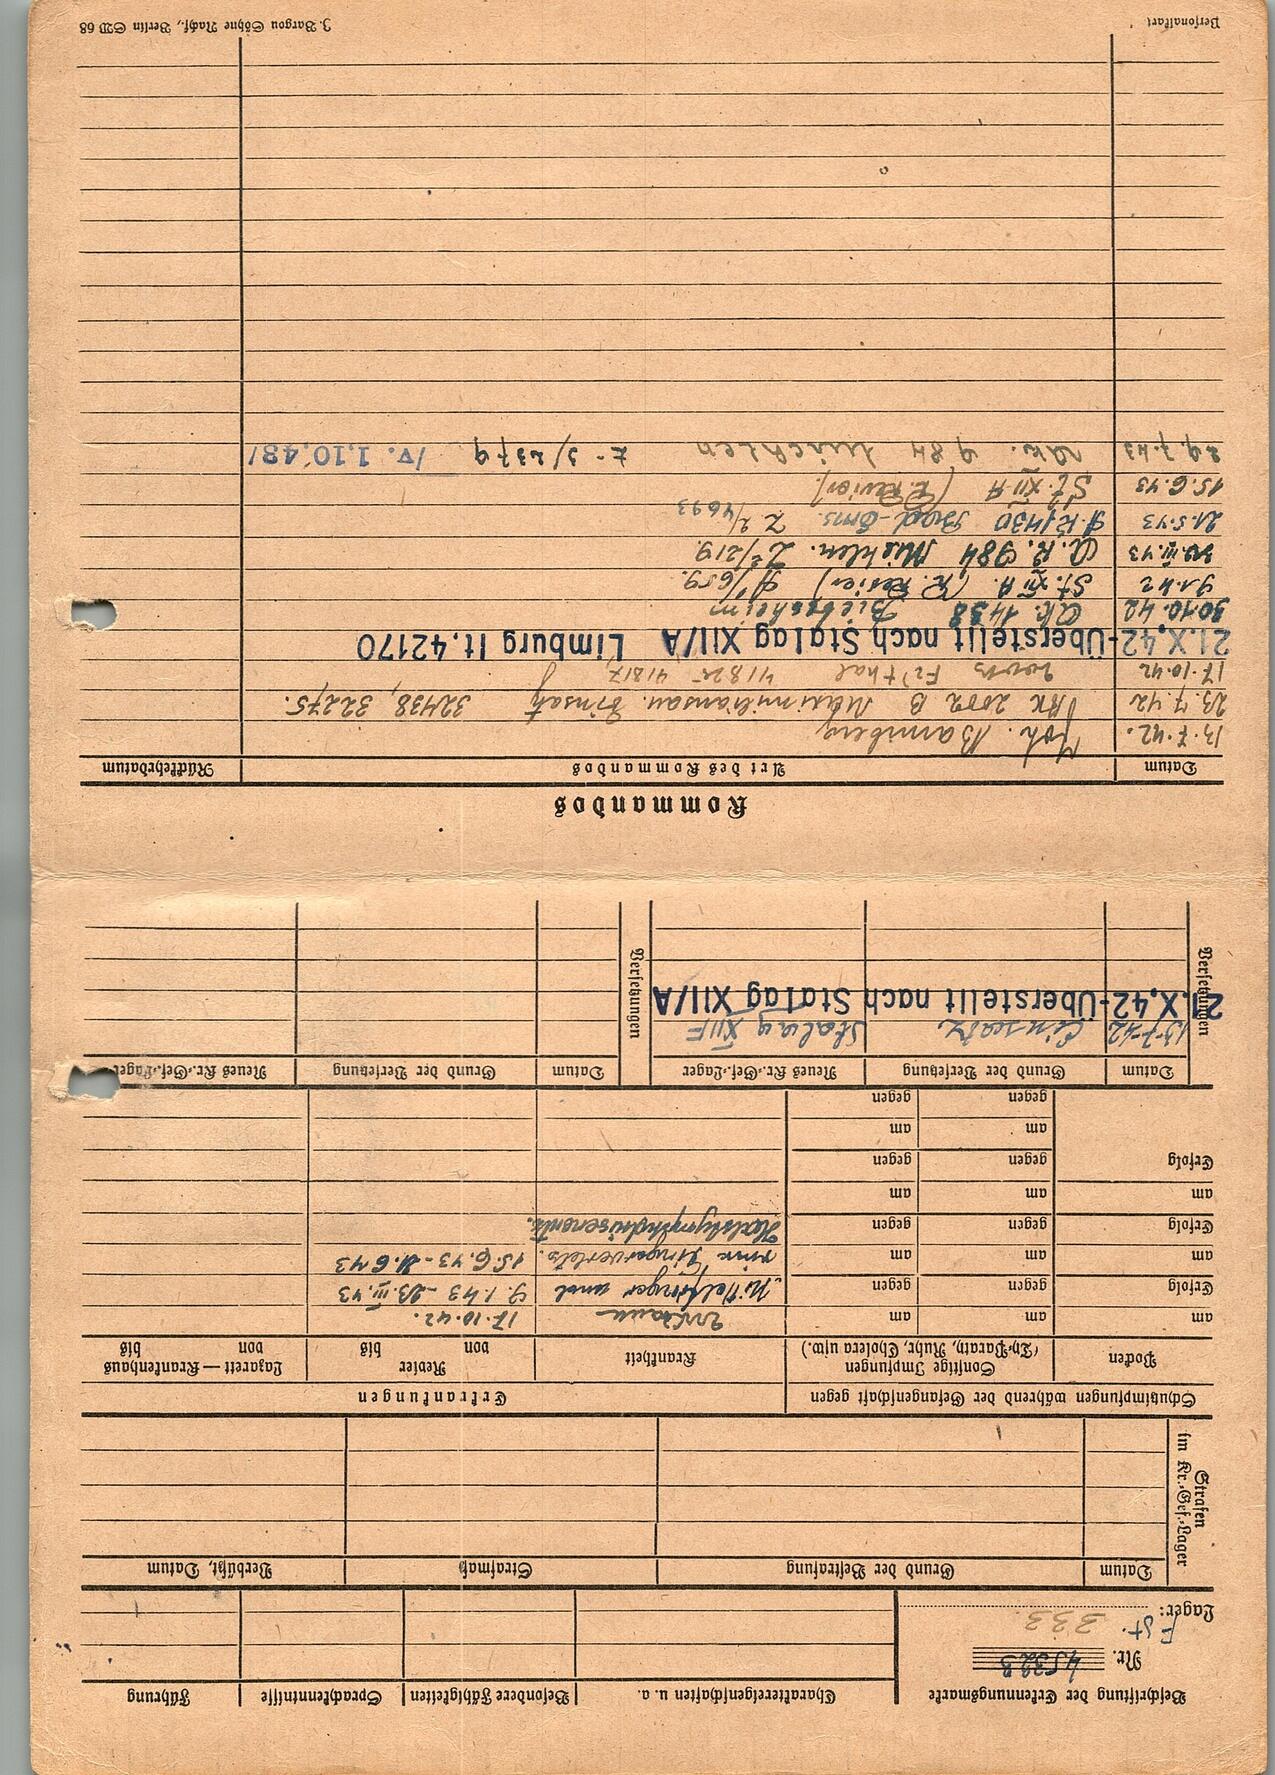 Beschriftung der Erkennungsmarke
Nr. 45323
Lager: Fst. 333
Charaktereigenschaften u. a.
Besondere Fähigkeiten
Sprachkenntnisse
Führung
Strafen im Kr.-Gef.-Lager
Datum
Grund der Bestrafung
Strafmaß
Verbüßt, Datum
Schutzimpfungen während der Gefangenschaft gegen
Erkrankungen
Pocken
Sonstige Impfungen
(Ty-Paraty, Ruhr, Cholera usw.)
Krankheit
Revier
von bis
Lazarett — Krankenhaus
von bis
am am am
17.10.42.
Erfolg gegen gegen
Mittelfinger und 9.1.43 - 23.III.43
am am am
15.6.43 - 21.6.43
Erfolg gegen gegen
am am am
Erfolg gegen gegen
am am
gegen gegen
Versetzungen
Datum
Grund der Versetzung
Neues Kr.-Gef.-Lager
Versetzungen
Datum
Grund der Versetzung
Neues Kr.-Gef.-Lager
13.7.42 Einsatz Stalag XII F
21.X.42-Überstellt nach Stalag XII/A
Kommandos
Datum
Art des Kommandos
Rückkehrdatum
13.7.42.
23.7.42 B Maximiliansau. Einsatz 32438, 32275.
17.10.42 41825 41817
21.X.42-Überstellt nach Stalag XII/A Limburg lt.42170
30.10.42 Ak. 1438 Biebesheim
9.1.42 St. XII A. (K. Revier) 9/659.
30.III.43 A.K. 984 Miehlen. Z2/219.
21.5.43 A.K 1430 Bad-Ems. Z 2/4693
15.6.43 St. XII A (K. Revier).
29.7.43 Ak. 984 Miehlen Z- 3/2379 IV. 1.10.48/
Personalkart
J. Bargou Söhne Nachf., Berlin SW 68